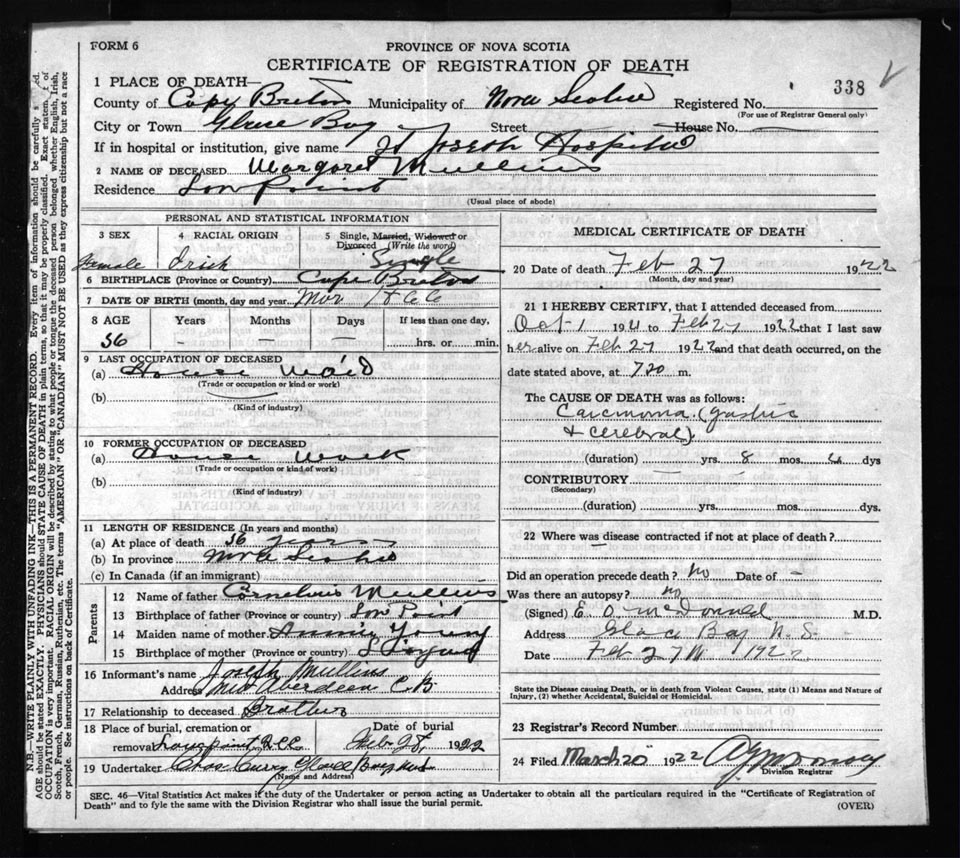 FORM 6
PROVINCE OF NOVA SCOTIA
CERTIFICATE OF REGISTRATION OF DEATH
338
1 PLACE OF DEATH—
County of Cape Breton Municipality of Nova Scotia Registered No.
(For use of Registrar General only)
City or Town Glace Bay Street House No.
If in hospital or institution, give name St Joseph Hospital
2 NAME OF DECEASED Margaret Mullins
Residence Low Point
(Usual place of abode)
PERSONAL AND STATISTICAL INFORMATION
3 SEX
Female
4 RACIAL ORIGIN
Irish
5 Single, Married, Widowed or
Divorced (Write the word)
Single
6 BIRTHPLACE (Province or Country) Cape Breton
7 DATE OF BIRTH (month, day and year) Mar 1866
8 AGE Years Months Days If less than one day,
56 – hrs. or min.
9 LAST OCCUPATION OF DECEASED
(a) House Maid
(Trade or occupation or kind or work)
(b)
(Kind of industry)
10 FORMER OCCUPATION OF DECEASED
(a) House Work
(Trade or occupation or kind of work)
(b)
(Kind of industry)
11 LENGTH OF RESIDENCE (In years and months)
(a) At place of death 56 years
(b) In province Nova Scotia
(c) In Canada (if an immigrant)
Parents
12 Name of father Cornelius Mullins
13 Birthplace of father (Province or country) Low Point
14 Maiden name of mother Young
15 Birthplace of mother (Province or country)
16 Informant's name Joseph Mullins
Address New Aberdeen C.B.
17 Relationship to deceased Brother
18 Place of burial, cremation or Date of burial
removal Low point Feb 28, 1922
19 Undertaker Chas Curry Glace Bay
(Name and Address)
MEDICAL CERTIFICATE OF DEATH
20 Date of death Feb 27 1922
(Month, day and year)
21 I HEREBY CERTIFY, that I attended deceased from
Oct 1 1921 to Feb 27 1922 that I last saw
her alive on Feb 27 1922 and that death occurred, on the
date stated above, at 720 m.
The CAUSE OF DEATH was as follows:
Carcinoma (gastric
& cerebral)
(duration) yrs. 8 mos. dys
CONTRIBUTORY
(Secondary)
(duration) yrs. mos. dys.
22 Where was disease contracted if not at place of death?
Did an operation precede death? No Date of –
Was there an autopsy? no
(Signed) E. O. McDonald M.D.
Address Glace Bay N.S.
Date Feb 27th 1922
State the Disease causing Death, or in death from Violent Causes, state (1) Means and Nature of
Injury, (2) whether Accidental, Suicidal or Homicidal.
23 Registrar's Record Number
24 Filed March 20 1922
Division Registrar
SEC. 46—Vital Statistics Act makes it the duty of the Undertaker or person acting as Undertaker to obtain all the particulars required in the "Certificate of Registration of
Death" and to fyle the same with the Division Registrar who shall issue the burial permit.
(OVER)
N.B.—WRITE PLAINLY WITH UNFADING INK—THIS IS A PERMANENT RECORD. Every item of information should be carefully
AGE should be stated EXACTLY. PHYSICIANS should STATE CAUSE OF DEATH in plain terms, so that it may be properly classified. Exact statement of
OCCUPATION is very important. RACIAL ORIGIN will be described by stating to what people or tongue the deceased person belonged whether English, Irish,
Scotch, French, German, Russian, Ruthenian, etc. The terms "AMERICAN" OR "CANADIAN" MUST NOT BE USED as they express citizenship but not a race
or people. See instructions on back of Certificate.